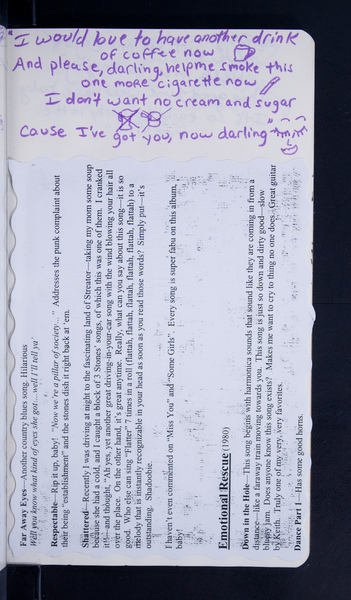 "I would love to have another drink
of coffee now
And please, darling, help me smoke this
one more cigarette now
I don't want no cream and sugar
Cause I've got you, now darling"
Far Away Eyes—Another country blues song. Hilarious
Well you know what kind of eyes she got… well I'll tell ya'
Respectable—Rip it up, baby! "Now we're a pillar of society…" Addresses the punk complaint about
their being "establishment" and the stones dish it right back at 'em.
Shattered—Recently I was driving at night to the fascinating land of Streator—taking my mom some soup
because she had a cold, and I caught a block of 3 Stones' songs, of which this was one of them. I cranked
it!!—and thought, "Ah yes, yet another great driving-in-your-car song with the wind blowing your hair all
over the place. On the other hand, it's great anytime. Really, what can you say about this song—it is so
good. Who else can sing "Flatter" 7 times in a roll (flattah, flattah, flattah, flattah, flattah, flattah, flattah) to a
melody that is instantly recognizable in your head as soon as you read those words? Simply put—it's
outstanding. Shadoobie.
I haven't even commented on "Miss You" and "Some Girls". Every song is super fabu on this album,
baby!
Emotional Rescue (1980)
Down in the Hole—This song begins with harmonica sounds that sound like they are coming in from a
distance—like a faraway train moving towards you. This song is just so down and dirty good—slow
bluesy jam. Does anyone know this song exists? Makes me want to cry to thing no one does. Great guitar
by Keith. Truly one of my very, very favorites.
Dance Part I—Has some good horns.